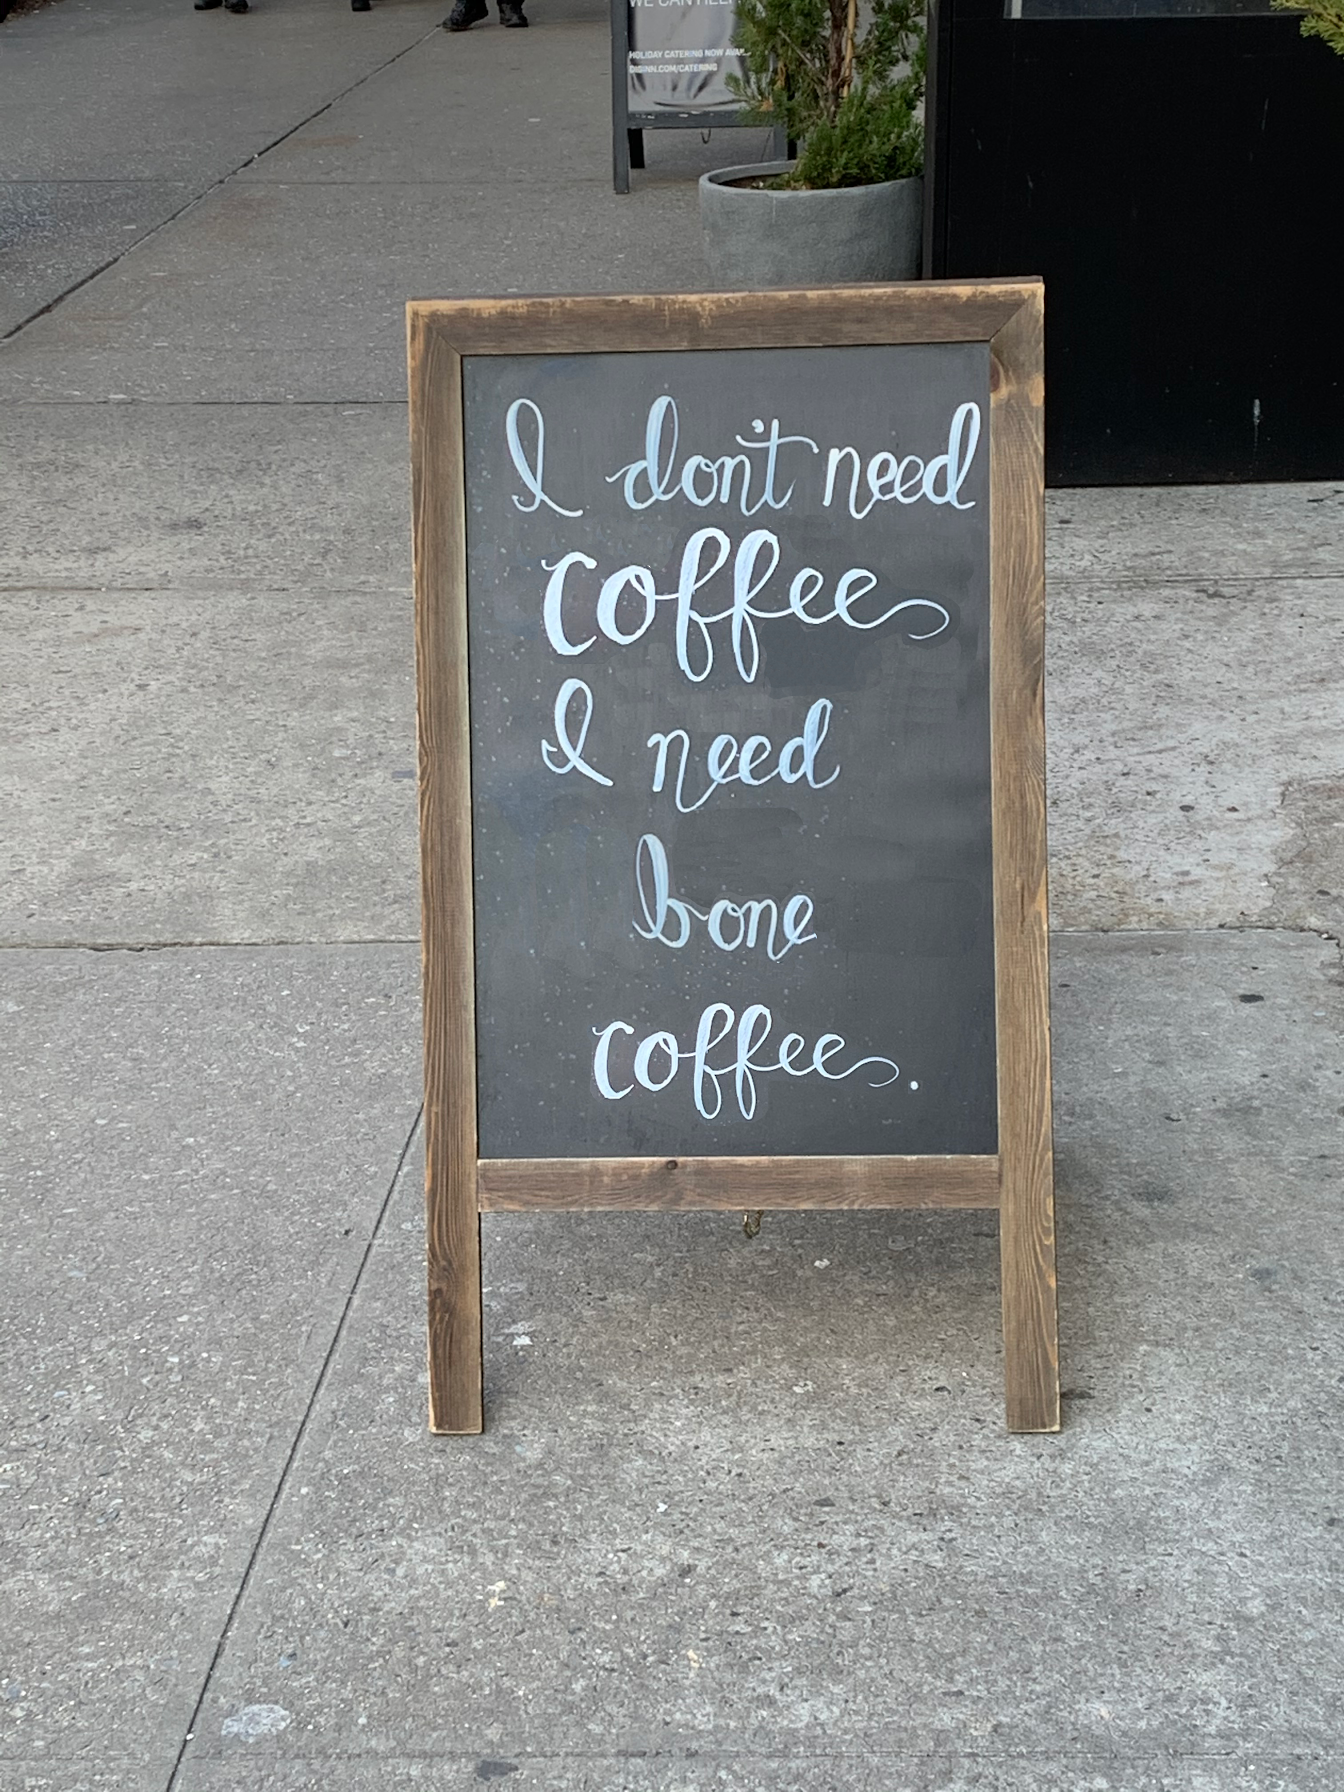 WE CAN HELP
HOLIDAY CATERING NOW
DIGINN.COM/CATERING
I don't need
coffee
I need
bone
coffee.